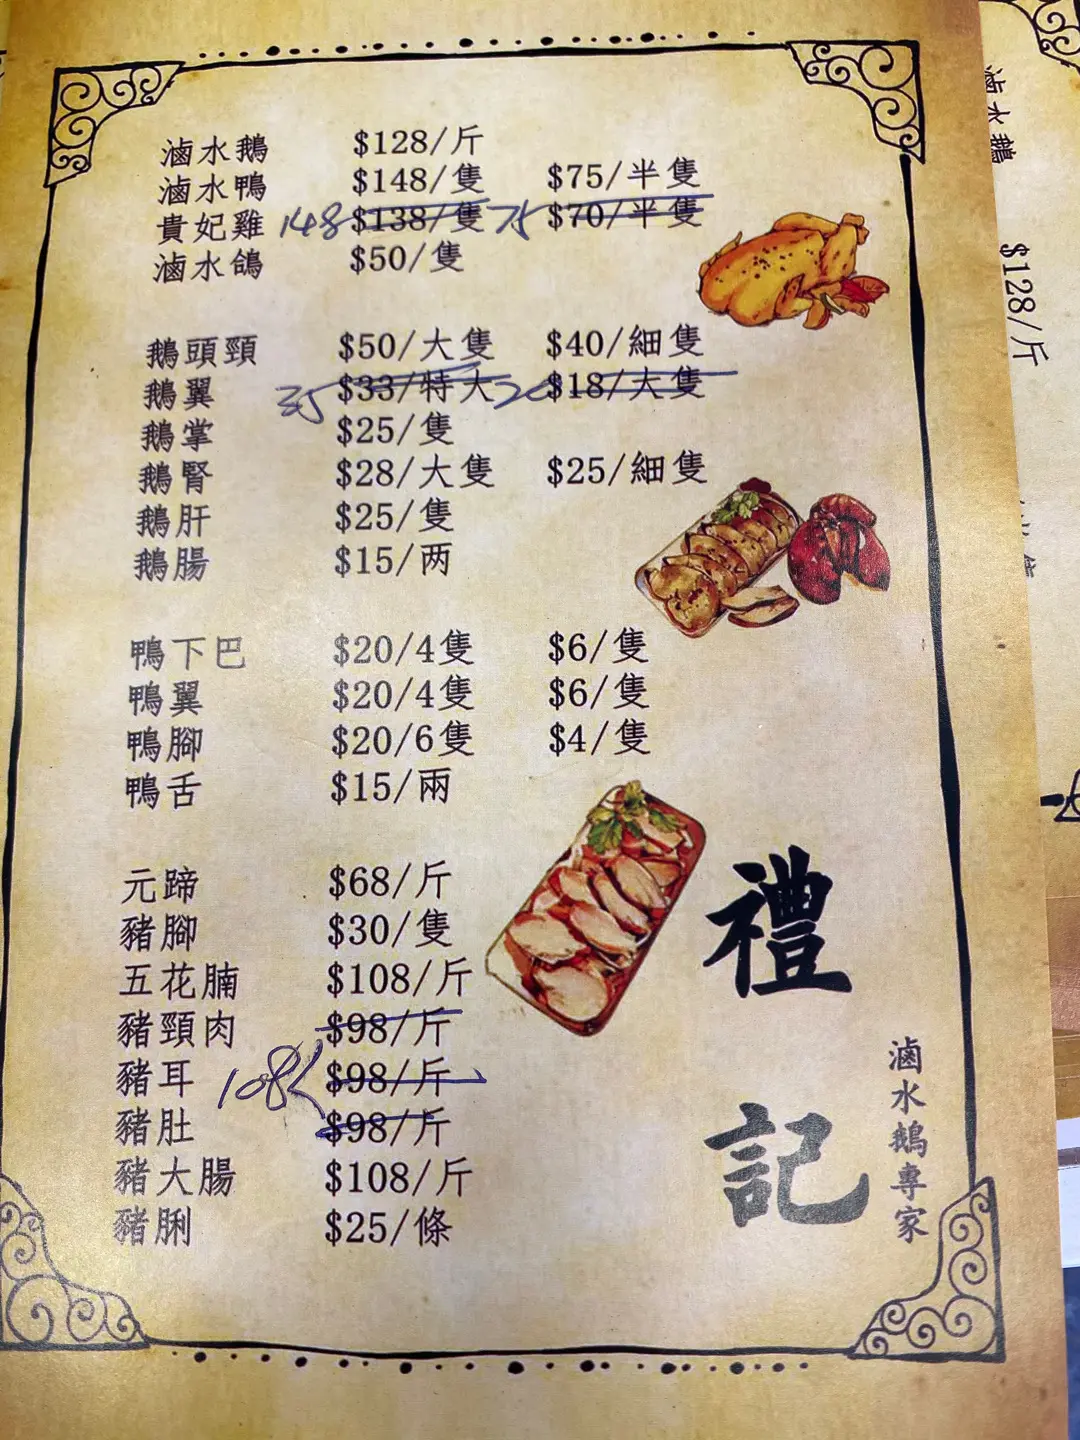 滷水鵝 $128/斤
滷水鴨 $148/隻 $75/半隻
貴妃雞 148 $138/隻 75 $70/半隻
滷水鴿 $50/隻
鵝頭頸 $50/大隻 $40/細隻
鵝翼 35 $33/特大 20 $18/大隻
鵝掌 $25/隻
鵝腎 $28/大隻 $25/細隻
鵝肝 $25/隻
鵝腸 $15/两
鴨下巴 $20/4隻 $6/隻
鴨翼 $20/4隻 $6/隻
鴨腳 $20/6隻 $4/隻
鴨舌 $15/兩
元蹄 $68/斤
豬腳 $30/隻
五花腩 $108/斤
豬頸肉 $98/斤
豬耳 108 $98/斤
豬肚 $98/斤
豬大腸 $108/斤
豬脷 $25/條
禮記
滷水鵝專家
滷水鵝 $128/斤